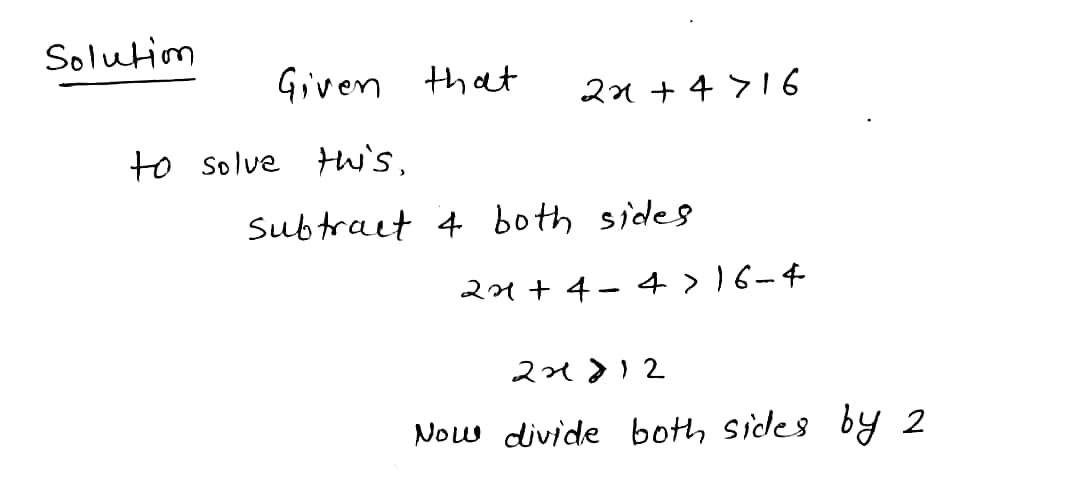 Solution
Given that 2x + 4 > 16
to solve this,
subtract 4 both sides
2x + 4 - 4 > 16 - 4
2x > 12
Now divide both sides by 2